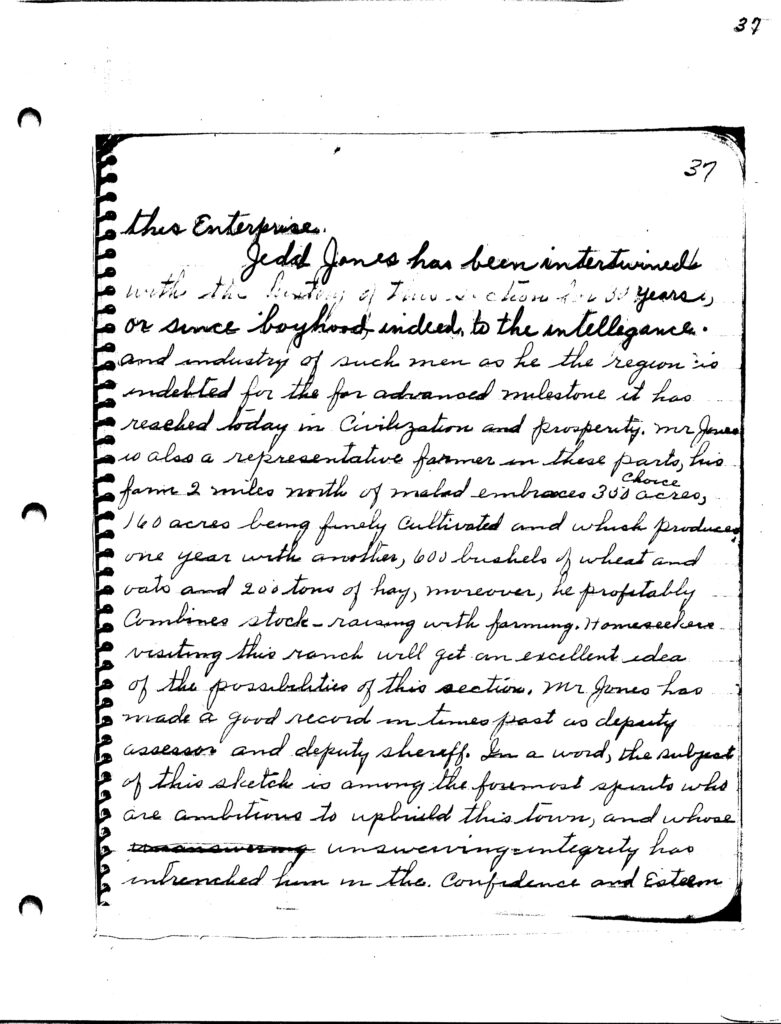 37
37
this Enterprise.
Jedd Jones has been intertwined
with the history of this section for 30 years,
or since boyhood, indeed, to the intellegance.
and industry of such men as he the region is
indebted for the far advanced milestone it has
reached today in Civilization and prosperity. Mr Jones
is also a representative farmer in these parts, his
farm 2 miles north of malad embraces 350 Choice acres,
160 acres being finely Cultivated and which produces,
one year with another, 600 bushels of wheat and
oats and 200 tons of hay, moreover, he profitably
Combines stock-raising with farming. Homeseekers
visiting this ranch will get an excellent idea
of the possibilities of this section. Mr Jones has
made a good record in times past as deputy
assessor and deputy sheriff. In a word, the subject
of this sketch is among the foremost spirits who
are ambitious to upbuild this town, and whose
unswerving integrity has
intrenched him in the. Confidence and Esteem